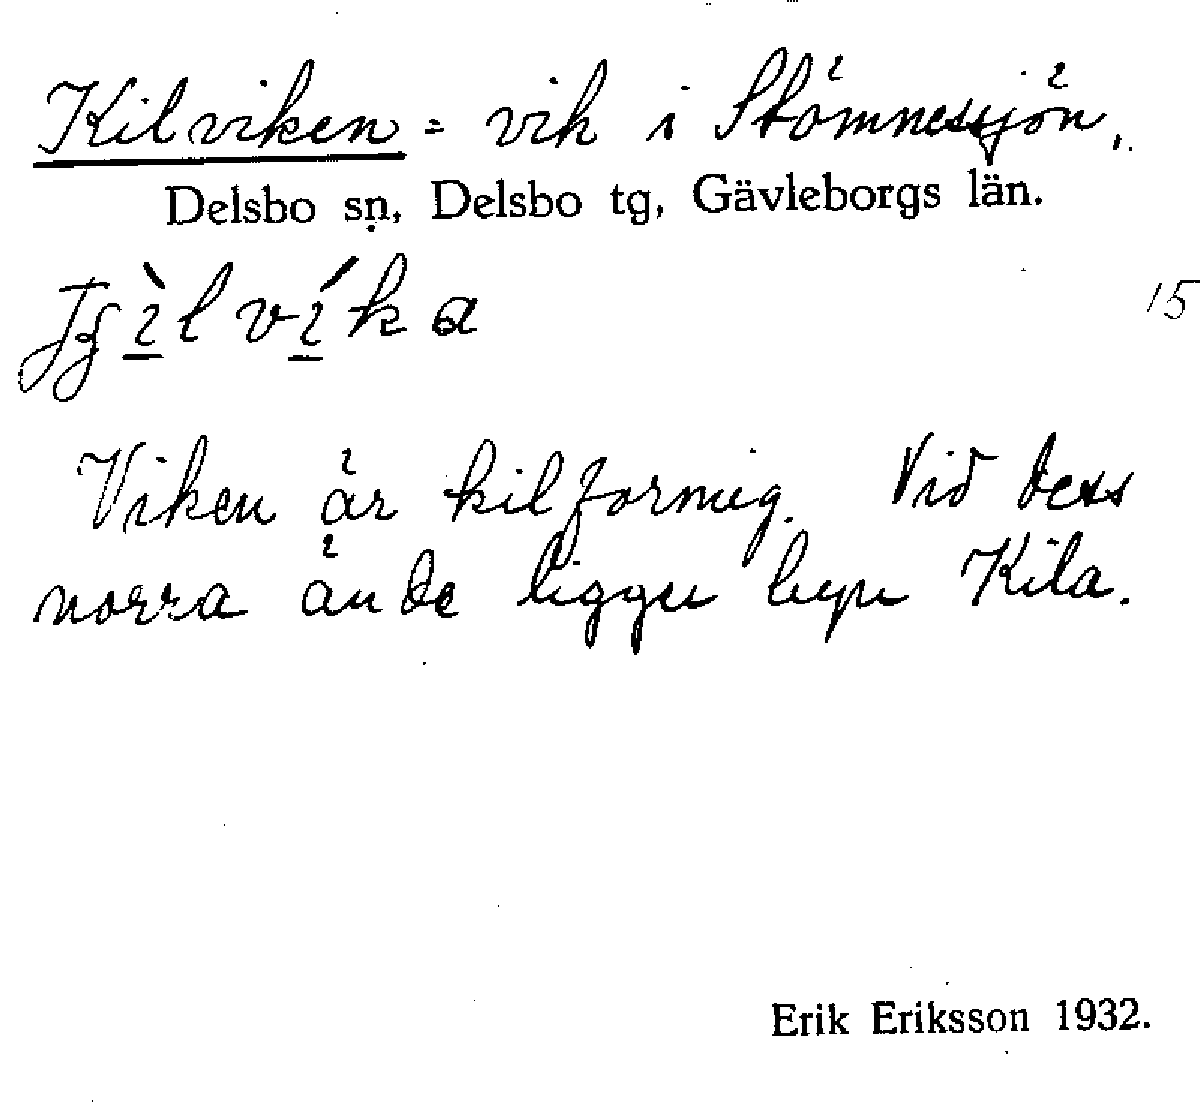 Kilviken = vik i Stömnessjön.
Delsbo sn, Delsbo tg, Gävleborgs län.
15
Viken är kilformig. Vid dess
norra ände ligger byn Kila.
Erik Eriksson 1932.